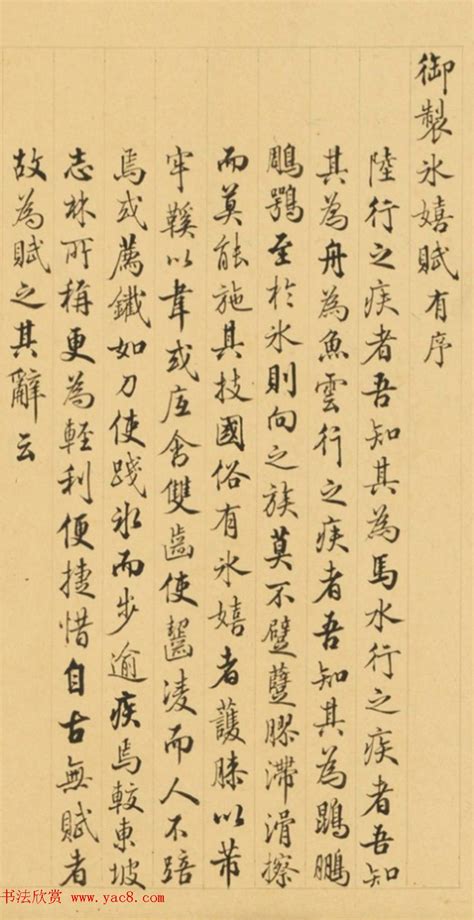 御製冰嬉賦有序
陸行之疾者吾知其為馬水行之疾者吾知
其為舟為魚雲行之疾者吾知其為鵾鵬
鵰鶚至於冰則向之族莫不躄躠膠滯滑擦
而莫能施其技國俗有冰嬉者護膝以芾
牢鞵以韋或底含雙齒使齧凌而人不踣
焉或薦鐵如刀使踐冰而步逾疾焉較東坡
志林所稱更為輕利便捷惜自古無賦者
故為賦之其辭云
书法欣赏 www.yac8.com